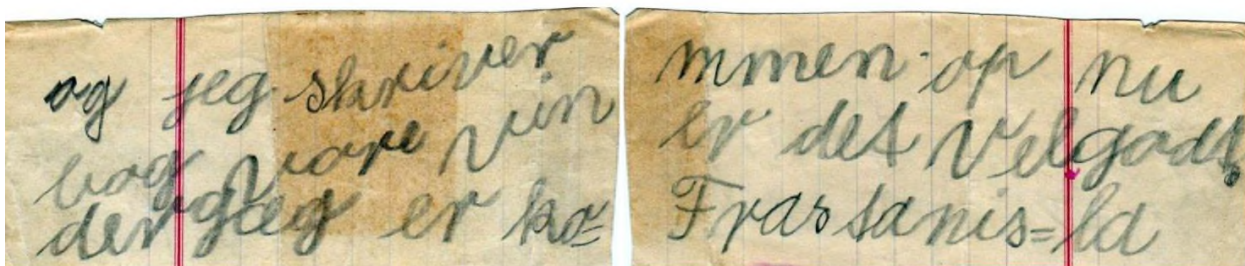 og jeg skriver
bog vore vin
der jæg er ko=
mmen op nu
er det Vel godt
Fra Stanis=la